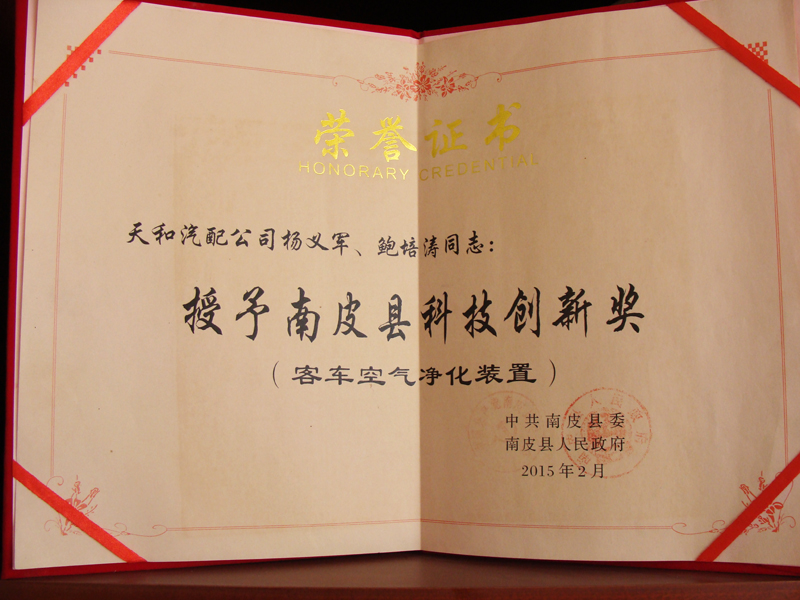 荣誉证书
HONORARY CREDENTIAL
天和汽配公司杨义军、鲍培涛同志：
授予南皮县科技创新奖
（客车空气净化装置）
中共南皮县委
南皮县人民政府
2015年2月